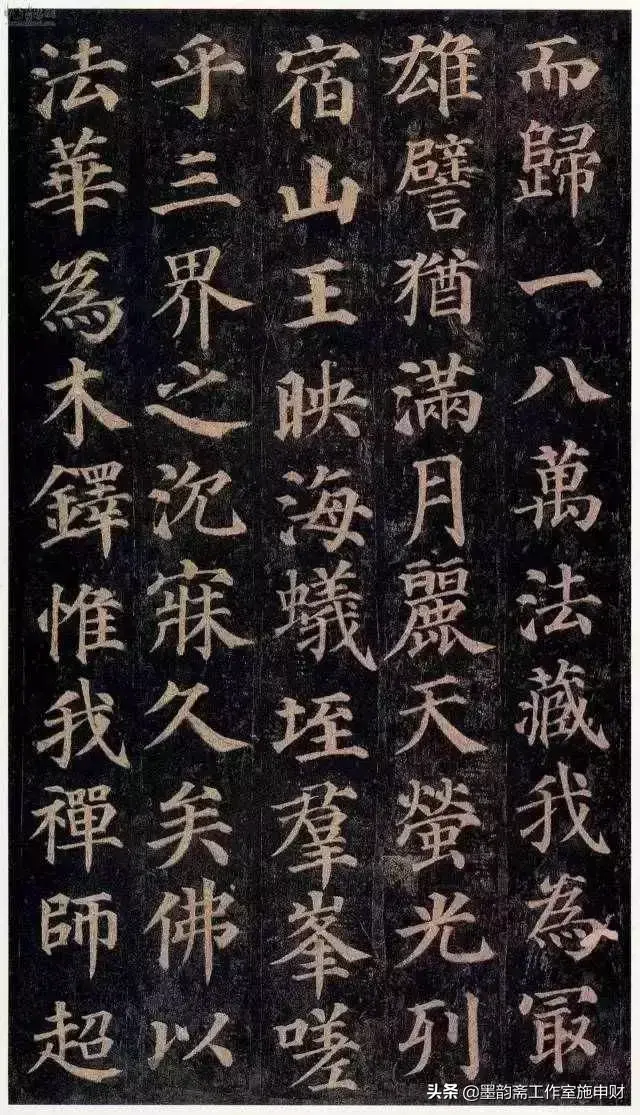 而歸一八萬法藏我為冣
雄譬猶滿月麗天螢光列
宿山王映海蟻垤羣峯嗟
乎三界之沉寐久矣佛以
法華為木鐸惟我禪師超
头条 @墨韵斋工作室施申财